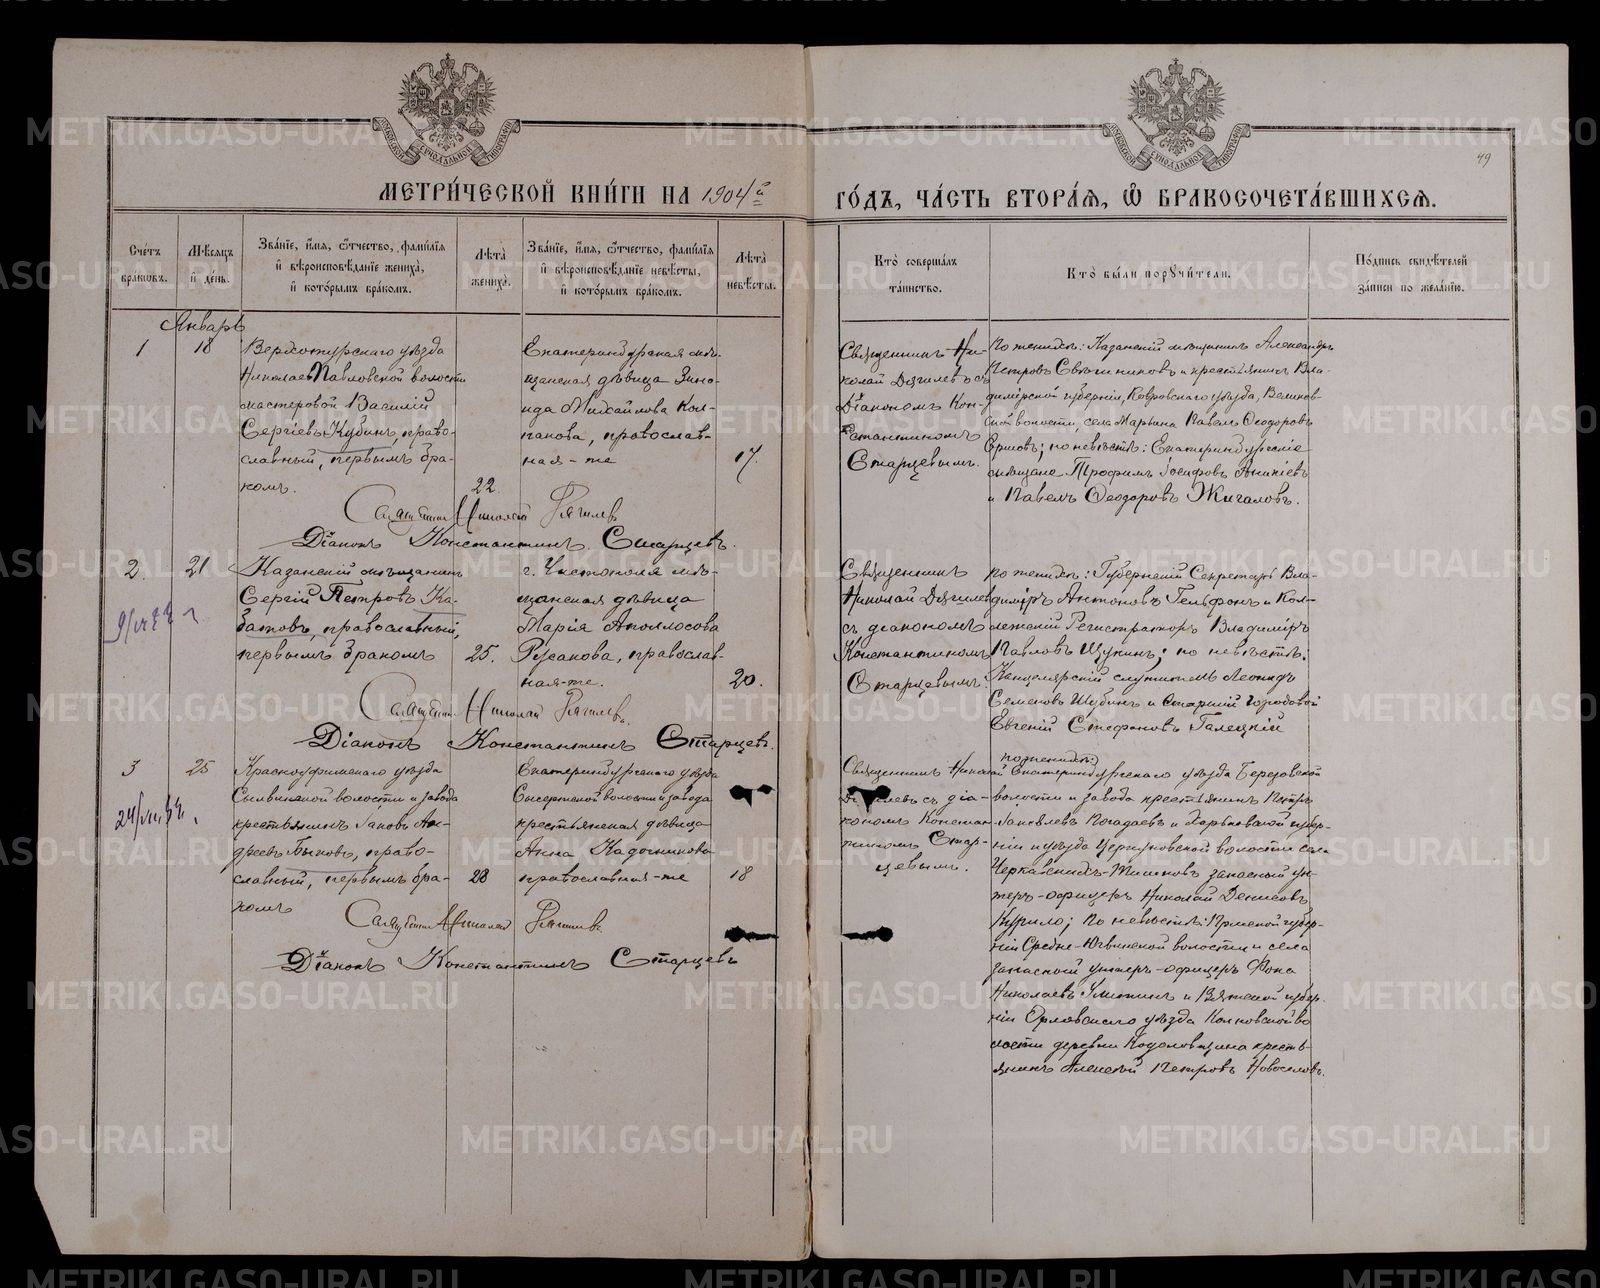 МЕТРИ́ЧЕСКОЙ КНИ́ГИ НА 1904й
ГО́ДЪ, ЧА́СТЬ ВТОРА́Я, Ѽ БРАКОСОЧЕТА́ВШИХСЯ.
49
Сче́тъ бра́ковъ.
Мѣ́сяцъ и҆ де́нь.
Зва́нїе, и҆́мя, ѻ҆́тчество, фами́лїя
и҆ вѣроисповѣ́данїе жениха̀,
и҆ кото́рымъ бра́комъ.
Лѣ́та жениха̀.
Зва́нїе, и҆́мя, ѻ҆́тчество, фами́лїя
и҆ вѣроисповѣ́данїе невѣ́сты,
и҆ кото́рымъ бра́комъ.
Лѣ́та невѣ́сты.
Кто̀ соверша́лъ
та́инство.
Кто̀ бы́ли порꙋчи́тели.
По́дпись свидѣ́телей
за́писи по жела́нїю.
Январь
1
18
Верхотурскаго уѣзда
Николае Павловской волости
мастеровой Василій
Сергіевъ Кубинъ, право-
славный, первымъ бра-
комъ.
22
Екатеринбургская мѣ-
щанская дѣвица Зино-
ида Михайлова Кол-
пакова, православ-
ная-же
17.
Священникъ Ни-
колай Дягилевъ съ
Діакономъ Кон-
стантиномъ
Старцевымъ.
По женихѣ: Казанскій мѣщанинъ Александръ
Петровъ Свѣшниковъ и крестьянинъ Вла-
димірской губерніи, Ковровскаго уѣзда,
волости, села Марьина Павелъ Ѳеодоровъ
Ершовъ; по невѣстѣ: Екатеринбургскіе
мѣщане Трофимъ Іосифовъ Аникіевъ
и Павелъ Ѳеодоровъ Жигаловъ.
Священникъ Николай Дягилевъ
Діаконъ Константинъ Старцевъ.
2.
21
Казанскій мѣщанинъ
Сергій Петровъ Ка-
затовъ, православный,
первымъ бракомъ
25.
г. Чистополя мѣ-
щанская дѣвица
Марія Аполлосова
Русакова, православ-
ная-же.
20.
Священникъ
Николай Дягилев
съ діакономъ
Константиномъ
Старцевымъ.
По женихѣ: Губернскій Секретарь Вла-
диміръ Антоновъ Гельфонъ и Кол-
лежскій Регистраторъ Владиміръ
Павловъ Щукинъ; по невѣстѣ:
Канцелярскій служитель Леонидъ
Семеновъ Шубинъ и Старшій городовой
Евгеній Стефановъ Галецкій
Священникъ Николай Дягилевъ.
Діаконъ Константинъ Старцевъ.
3
25
Красноуфимскаго уѣзда
Сылвинской волости и завода
крестьянинъ Іаковъ Ан-
дреевъ Быковъ, право-
славный, первымъ бра-
комъ
28
Екатеринбургскаго уѣзда
Сысертской волости и завода
крестьянская дѣвица
Анна Кадочникова
православная-же
18
Священникъ Николай
Дягилевъ съ діа-
кономъ Констан-
тиномъ Стар-
цевымъ.
по женихѣ:
Екатеринбургскаго уѣзда Березовской
волости и завода крестьянинъ Петръ
Іаковлевъ Погадаевъ и Харьковской губер-
ніи и уѣзда волости села
запасный ун-
теръ-офицеръ Николай Денисовъ
Курило; по невѣстѣ: Пермской губер-
ніи Средне-Югвинской волости и села
запасный унтеръ-офицеръ Фока
Николаевъ и Вятской губер-
ніи Орловскаго уѣзда во
лости деревни кресть-
янинъ Алексѣй Петровъ Новоселовъ.
Священникъ Николай Дягилевъ.
Діаконъ Константинъ Старцевъ
METRIKI.GASO-URAL.RU